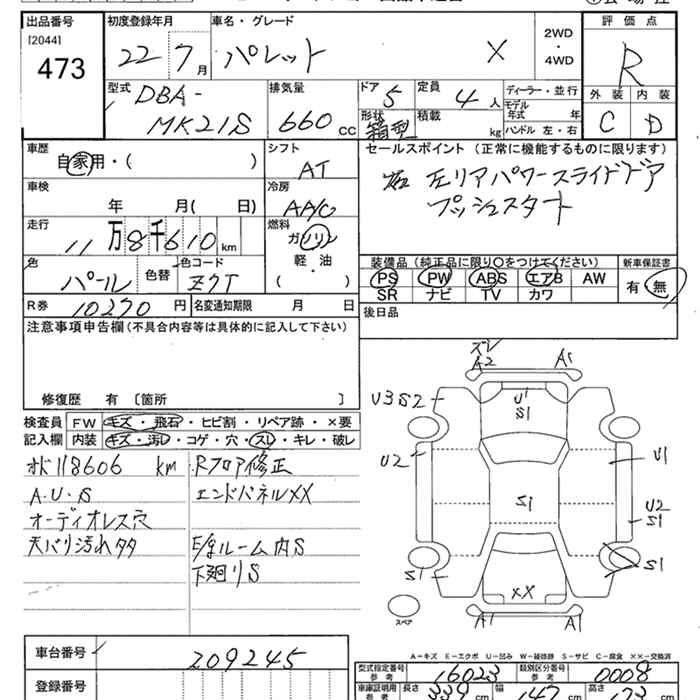 出品番号 初度登録年月 車名・グレード 2WD・4WD 評価点
[2044]
473 22 7月 パレット X R
外装 内装
C D
型式 DBA-
MK21S
排気量 660 cc
ドア 5 定員 4人 ディーラー・並行
形状 箱型 積載 kg モデル年式 年
ハンドル 左・右
車歴 自家用・( )
シフト AT
セールスポイント(正常に機能するものに限ります)
左リアパワースライドドア
プッシュスタート
車検 年 月( 日)
冷房 AA/C
走行 11万8千610km
燃料 ガソリン
軽・油
( )
色 パール 色替 色コード Z7T
装備品(純正品に限り〇をつけてください) 新車保証書
PS PW ABS エアB AW 有・無
SR ナビ TV カワ
R券 10270円 名変通知期限 月 日
後日品
注意事項申告欄(不具合内容等は具体的に記入して下さい)
修復歴 有〔箇所 〕
検査員 FW キズ・飛石・ヒビ割・リペア跡・×要
記入欄 内装 キズ・汚レ・コゲ・穴・スレ・キレ・破レ
オド118606 km Rフロア修正
A・U・S エンドパネルXX
オーディオレス穴
天バリ汚れタタ E/gルーム内S
下廻りS
ズレ
A2 A1
U3S2 U1
S1
U2 U1
S1 U2
S1
S1 S1
XX
A1 A1
スペア
A-キズ E-エクボ U-凹み W-補修跡 S-サビ C-腐食 ××-交換済
車台番号 209245
登録番号
型式指定番号 参考 16023 類別区分番号 参考 0008
車庫証明用 参考 長さ 339cm 幅 147cm 高さ 173cm